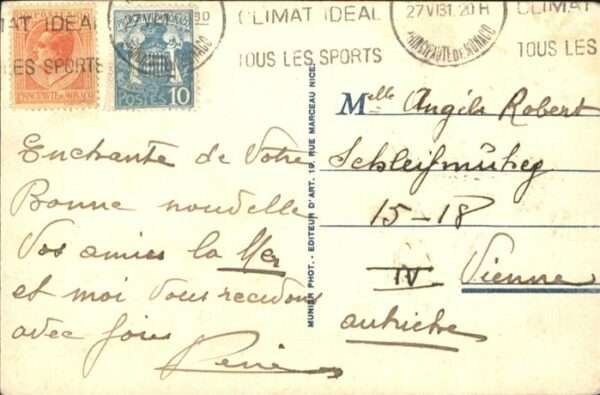 MAT IDEAL
LES SPORTS
CLIMAT IDEAL
TOUS LES SPORTS
27 VI 31. 20 H
PRINCIPAUTE DE MONACO
CLIMAT
TOUS LES
PRINCIPAUTE DE MONACO
POSTES 10
MUNIER PHOT. - EDITEUR D'ART. 19, RUE MARCEAU NICE
Enchante de Votre
Bonne nouvelle
Vos amies la Mer
et moi Vous
avec joie
Melle Angèle Robert
15-18
IV Vienne
autriche